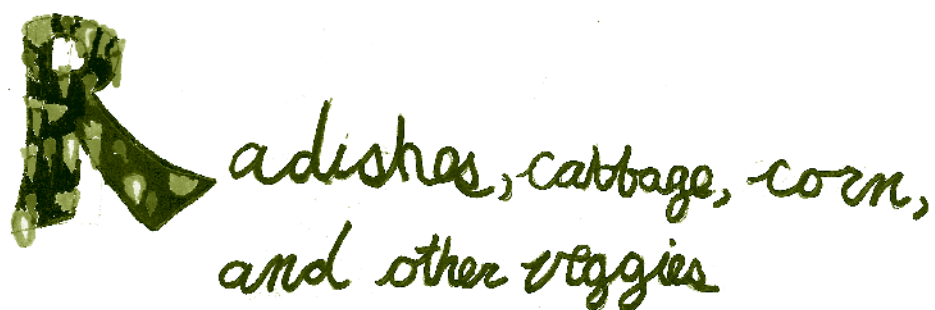 Radishes, cabbage, corn,
and other veggies